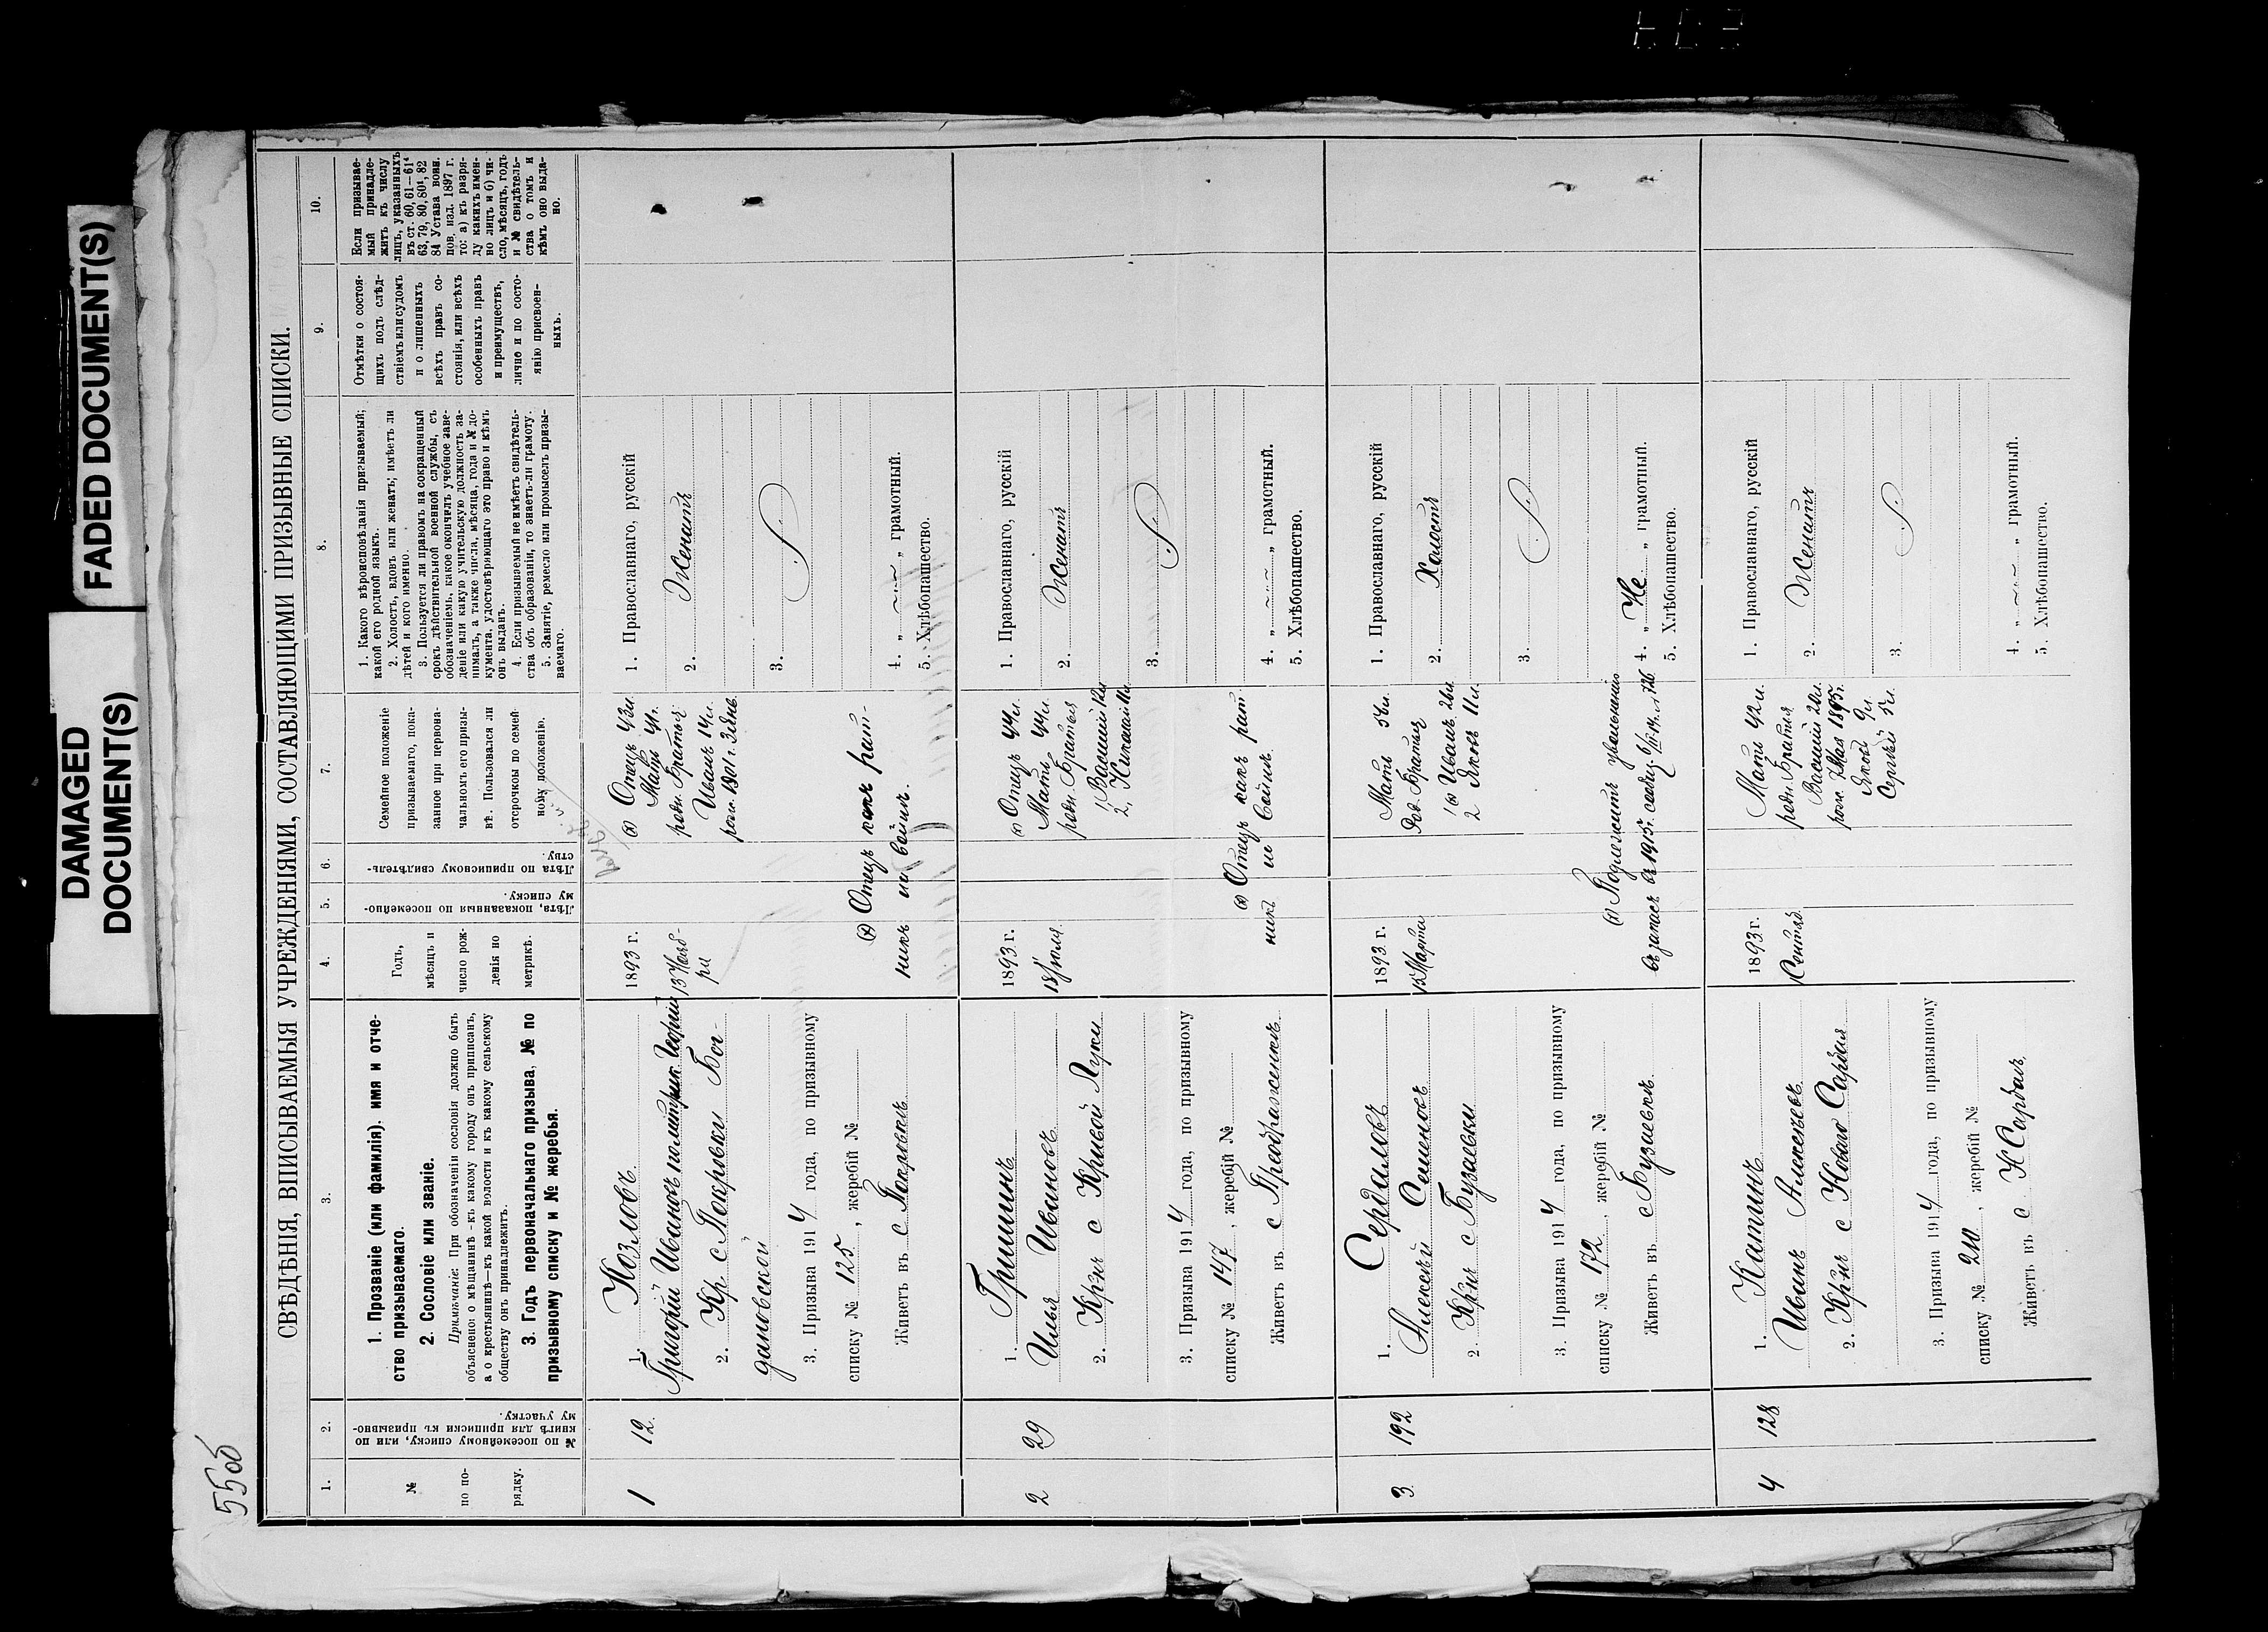 DAMAGED
DOCUMENT(S)
FADED DOCUMENT(S)
55об
СВѢДѢНІЯ, ВПИСЫВАЕМЫЯ УЧРЕЖДЕНІЯМИ, СОСТАВЛЯЮЩИМИ ПРИЗЫВНЫЕ СПИСКИ.
1.
№
по по-
рядку.
2.
№ по посемейному списку, или по
книгѣ для приписки къ призывно-
му участку.
3.
1. Прозваніе (или фамилія), имя и отче-
ство призываемаго.
2. Сословіе или званіе.
Примѣчаніе: При обозначеніи сословія должно быть
объяснено: о мѣщанинѣ–къ какому городу онъ приписанъ,
а о крестьянинѣ—къ какой волости и къ какому сельскому
обществу онъ принадлежитъ.
3. Годъ первоначальнаго призыва, № по
призывному списку и № жеребья.
4.
Годъ,
мѣсяцъ и
число рож-
денія по
метрикѣ.
5.
Лѣта, показанныя по посемейно-
му списку.
6.
Лѣта по приписному свидѣтель-
ству.
7.
Семейное положеніе
призываемаго, пока-
занное при первона-
чальномъ его призы-
вѣ. Пользовался ли
отсрочкою по семей-
ному положенію.
8.
1. Какого вѣроисповѣданія призываемый;
какой его родной языкъ.
2. Холостъ, вдовъ или женатъ; имѣетъ ли
дѣтей и кого именно.
3. Пользуется ли правомъ на сокращенный
срокъ дѣйствительной военной службы, съ
обозначеніемъ, какое окончилъ учебное заве-
деніе или какую учительскую должность за-
нималъ, а также числа, мѣсяца, года и № до-
кумента, удостовѣряющаго это право и кѣмъ
онъ выданъ.
4. Если призываемый не имѣетъ свидѣтель-
ства объ образованіи, то знаетъ-ли грамоту.
5. Занятіе, ремесло или промыселъ призы-
ваемаго.
9.
Отмѣтки о состоя-
щихъ подъ слѣд-
ствіемъ или судомъ
и о лишенныхъ
всѣхъ правъ со-
стоянія, или всѣхъ
особенныхъ правъ
и преимуществъ,
лично и по состо-
янію присвоен-
ныхъ.
10.
Если призывае-
мый принадле-
житъ къ числу
лицъ, указанныхъ
въ ст. 60, 61–61⁴
63, 79, 80, 80¹, 82
84 Устава воин.
пов. изд. 1897 г.
то: а) къ разря-
ду какихъ имен-
но лицъ и б) чи-
сло, мѣсяцъ, годъ
и № свидѣтель-
ства о томъ и
кѣмъ оно выда-
но.
1
12.
1. Козловъ
Григорій Ивановъ по метрик Георгій
2. Кр с Покровки Бог-
дановской
3. Призыва 1914 года, по призывному
списку № 125, жеребій №
Живетъ въ с Покровкѣ
1893 г.
13 Нояб-
ря
Отецъ 43 л.
Мать 41.
родн. Братья
Иванъ 14 л.
рож. 1901 г. 3 янв.
Отецъ какъ рат-
никъ на войнѣ.
1. Православнаго, русскій
2. Женатъ
3.
4. „ „ грамотный.
5. Хлѣбопашество.
2
29
1. Гришинъ
Илья Ивановъ
2. Кр-нъ с Кривой Луки
3. Призыва 1914 года, по призывному
списку № 147, жеребій №
Живетъ въ с Преображенкѣ
1893 г.
18 Іюля
Отецъ 44 л.
Мать 44 л.
родн. Братья
1, Василій 12 л
2, Николай 11 л.
Отецъ какъ рат
никъ на войнѣ
1. Православнаго, русскій
2. Женатъ
3.
4. „ „ грамотный.
5. Хлѣбопашество.
3
192
1. Сердаловъ
Алексѣй Семеновъ
2. Кр-нъ с Бузаевки
3. Призыва 1914 года, по призывному
списку № 172, жеребій №
Живетъ въ с Бузаевкѣ
1893 г.
15 Марта
Мать 54 л.
Род. Братья
1 Иванъ 26 л
2 Яковъ 11 л.
Подлежитъ увольненію
въ запасъ въ 1915 г.
1. Православнаго, русскій
2. Холостъ
3.
4. „ Не „ грамотный.
5. Хлѣбопашество.
4
128
1. Катинъ
Иванъ Алексѣевъ
2. Кр-нъ с Новаго Сарбая
3. Призыва 1914 года, по призывному
списку № 210, жеребій №
Живетъ въ с Н Сарбаѣ
1893 г.
1 Сентяб.
Мать 42 л.
родн. Братья
Василій 20 л.
рож. 7 Мая 1895 г.
Яковъ 9 л
Сергѣй 5 л.
1. Православнаго, русскій
2. Женатъ
3.
4. „ „ грамотный.
5. Хлѣбопашество.